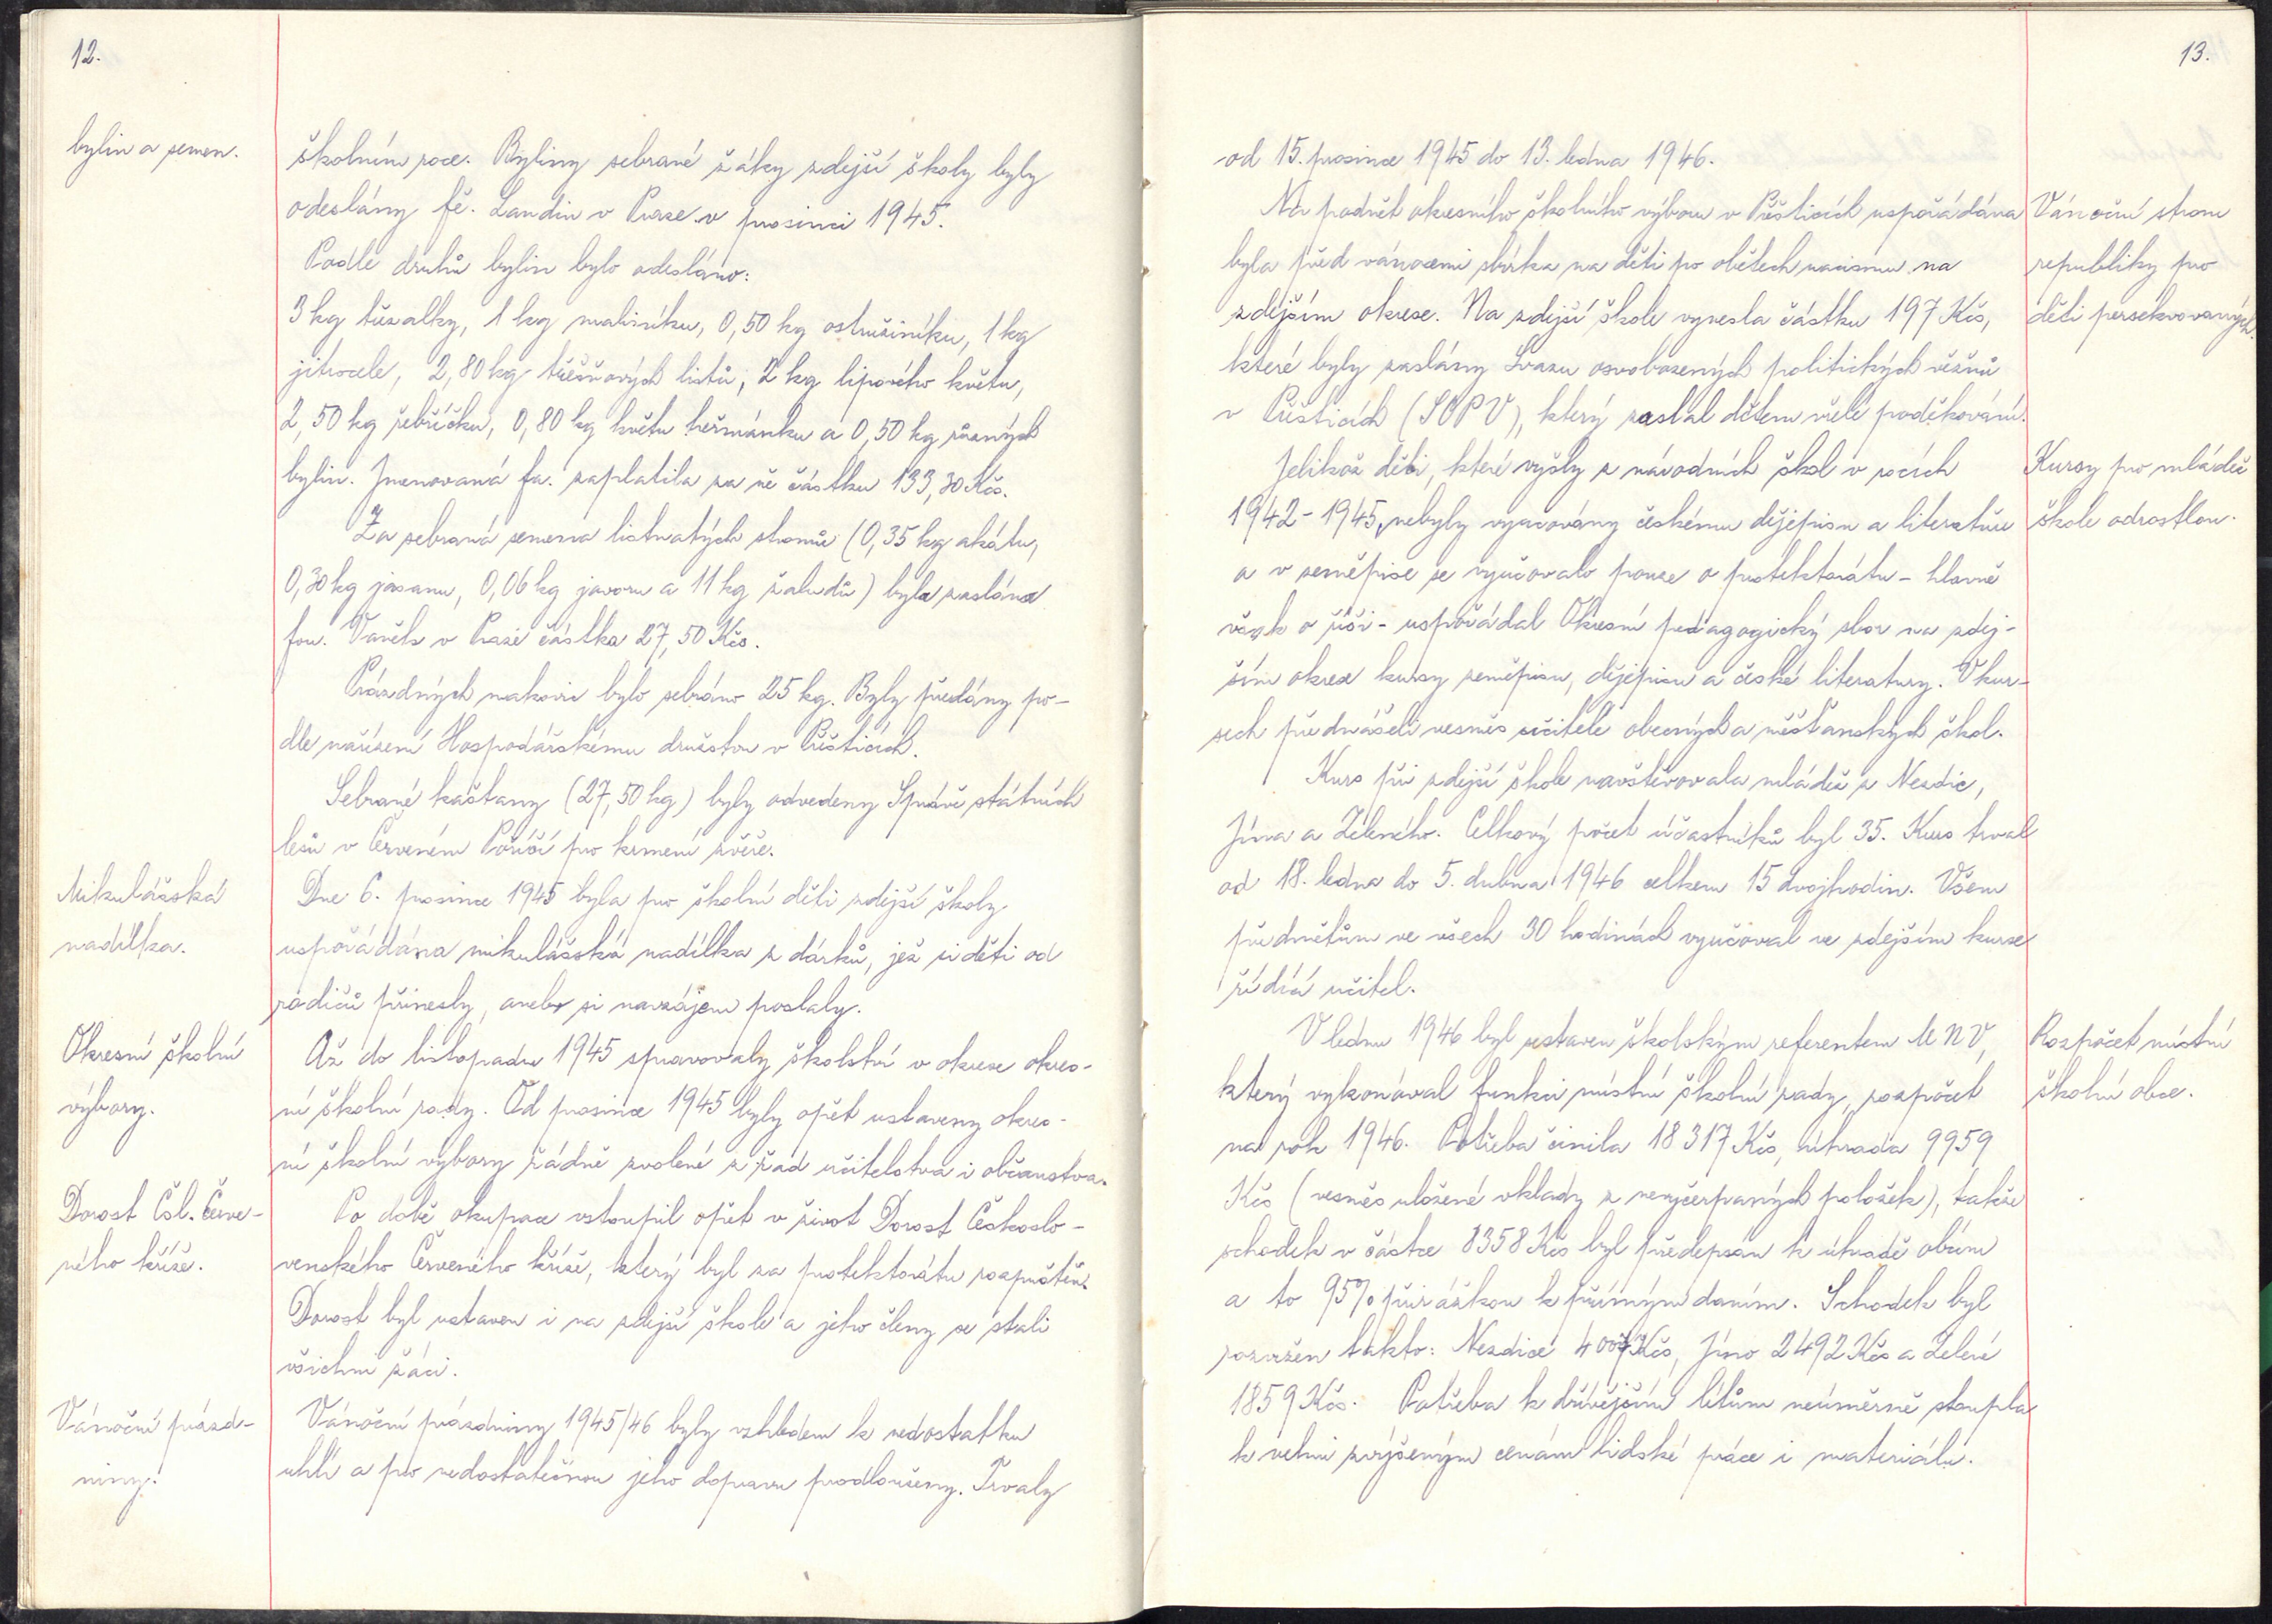 12.
bylin a semen.
školním roce. Byliny sebrané žáky zdejší školy byly
odeslány fě. Landin v Praze v prosinci 1945.
Podle druhů bylin bylo odesláno:
3 kg třezalky, 1 kg maliníku, 0,50 kg ostružiníku, 1 kg
jitrocele, 2,80 kg třešňových listů, 2 kg lipového květu,
2,50 kg řebříčku, 0,80 kg květu heřmánku a 0,50 kg různých
bylin. Jmenovaná fa. zaplatila za ně částku 133,30 Kčs.
Za sebraná semena listnatých stromů (0,35 kg akátu,
0,30 kg jasanu, 0,06 kg javoru a 11 kg žaludů) byla zaslána
fou. Vaněk v Praze částka 27,50 Kčs.
Prázdných makovic bylo sebráno 25 kg. Byly předány po-
dle nařízení Hospodářskému družstvu v Přešticích.
Sebrané kaštany (27,50 kg) byly odvedeny Správě státních
lesů v Červeném Poříčí pro krmení zvěře.
Mikulášská
nadílka.
Dne 6. prosince 1945 byla pro školní děti zdejší školy
uspořádána mikulášská nadílka z dárků, jež si děti od
rodičů přinesly, anebo si navzájem poslaly.
Okresní školní
výbory.
Až do listopadu 1945 spravovaly školství v okrese okres-
ní školní rady. Od prosince 1945 byly opět ustaveny okres-
ní školní výbory řádně zvolené z řad učitelstva i občanstva.
Dorost Čsl. Červe-
ného kříže.
Po době okupace vstoupil opět v život Dorost Českoslo-
venského Červeného kříže, který byl za protektorátu rozpuštěn.
Dorost byl ustaven i na zdejší škole a jeho členy se stali
všichni žáci.
Vánoční prázd-
niny.
Vánoční prázdniny 1945/46 byly vzhledem k nedostatku
uhlí a pro nedostatečnou jeho dopravu prodlouženy. Trvaly
13.
od 15. prosince 1945 do 13. ledna 1946.
Vánoční strom
republiky pro
děti persekvovaných.
Na podnět okresního školního výboru v Přešticích uspořádána
byla před vánocemi sbírka na děti po obětech nacismu na
zdejším okrese. Na zdejší škole vynesla částku 197 Kčs,
které byly zaslány Svazu osvobozených politických vězňů
v Přešticích (SOPV), který zaslal dětem vřelé poděkování.
Kursy pro mládež
škole odrostlou.
Jelikož děti, které vyšly z národních škol v rocích
1942-1945, nebyly vyučovány českému dějepisu a literatuře
a v zeměpise se vyučovalo pouze o protektorátu - hlavně
však o říši - uspořádal Okresní pedagogický sbor na zdej-
ším okrese kursy zeměpisu, dějepisu a české literatury. V kur-
sech přednášeli vesměs učitelé obecných a měšťanských škol.
Kurs při zdejší škole navštěvovala mládež z Nezdic,
Jína a Zeleného. Celkový počet účastníků byl 35. Kurs trval
od 18. ledna do 5. dubna 1946 celkem 15 dvojhodin. Všem
předmětům ve všech 30 hodinách vyučoval ve zdejším kurse
řídící učitel.
Rozpočet místní
školní obce.
V lednu 1946 byl sestaven školským referentem MNV,
který vykonával funkci místní školní rady, rozpočet
na rok 1946. Potřeba činila 18 317 Kčs, úhrada 9959
Kčs (vesměs uložené vklady z nevyčerpaných položek), takže
schodek v částce 8358 Kčs byl předepsán k úhradě obcím
a to 95% přirážkou k přímým daním. Schodek byl
rozvržen takto: Nezdice 4007 Kčs, Jíno 2492 Kčs a Zelené
1859 Kčs. Potřeba k dřívějším létům neúměrně stoupla
k velmi zvýšeným cenám lidské práce i materiálu.